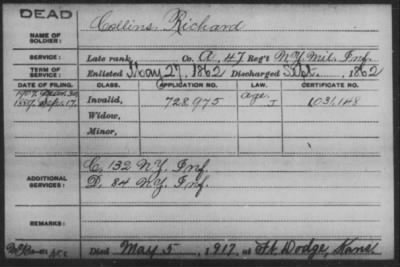 DEAD
Collins, Richard
NAME OF SOLDIER:
SERVICE: Late rank Co. A, 47 Reg't N.Y. Mil. Inf.
TERM OF SERVICE: Enlisted May 27, 1862 Discharged Sept. 1862
DATE OF FILING. CLASS. APPLICATION NO. LAW. CERTIFICATE NO.
1889 Sep. 17. Invalid, 728975 age J 1031,148
Widow,
Minor,
ADDITIONAL SERVICES:
C, 132 N.Y. Inf.
D, 84 N.Y. Inf.
REMARKS:
Died May 5, 1917, at Ft. Dodge, Kans